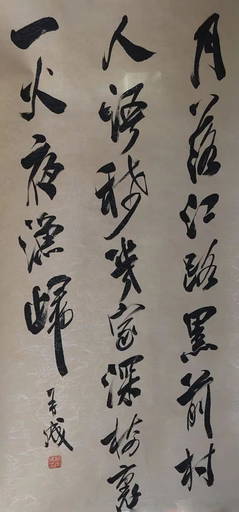 月落江路黑前村
人語稀幾家深樹裏
一火夜漁歸